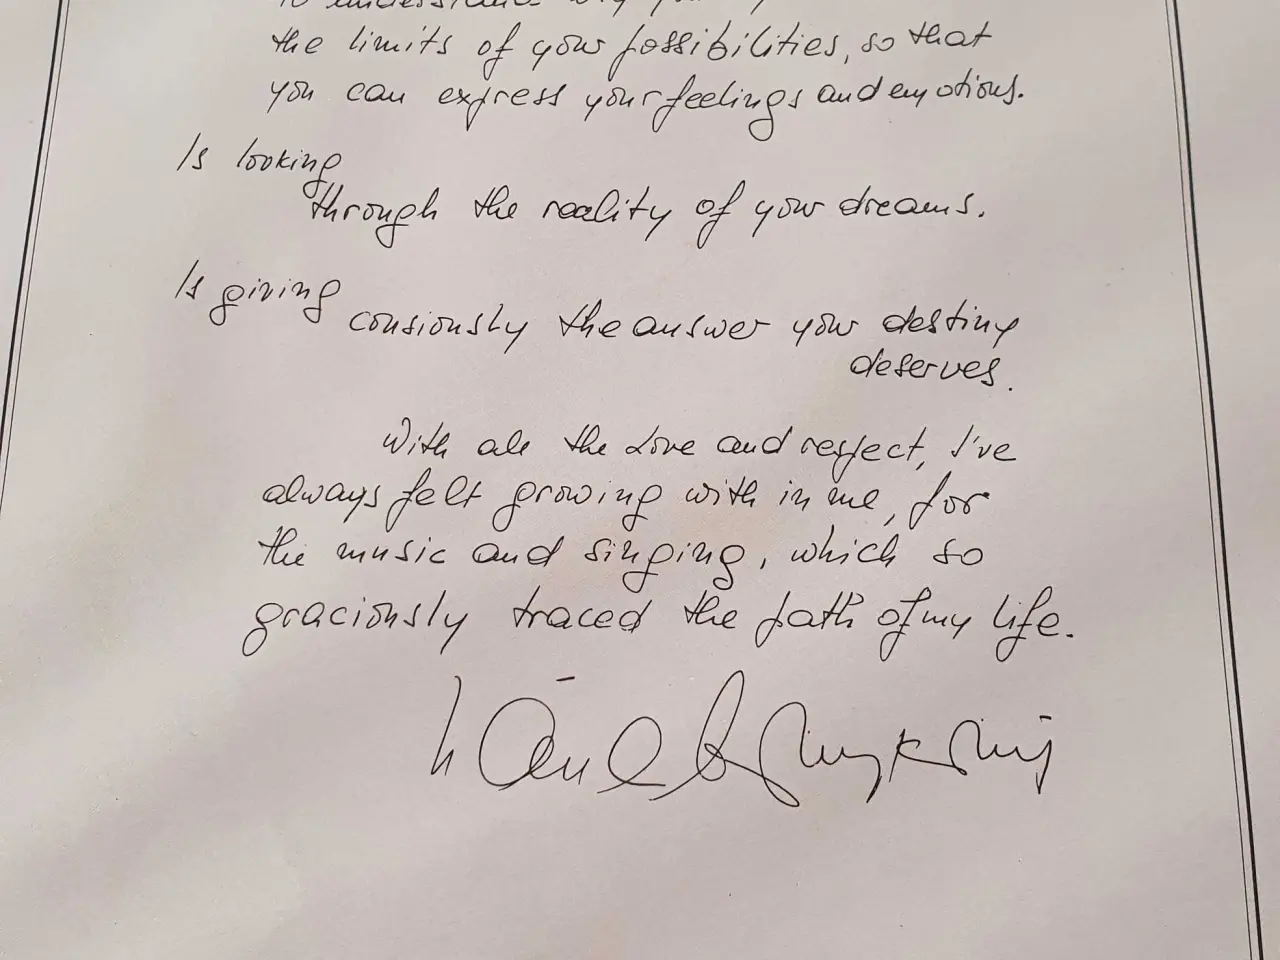 to understand why you
the limits of your possibilities, so that
you can express your feelings and emotions.
Is looking
through the reality of your dreams.
Is giving
consiously the answer your destiny
deserves.
With all the Love and respect, I've
always felt growing with in me, for
the music and singing, which so
graciously traced the path of my life.